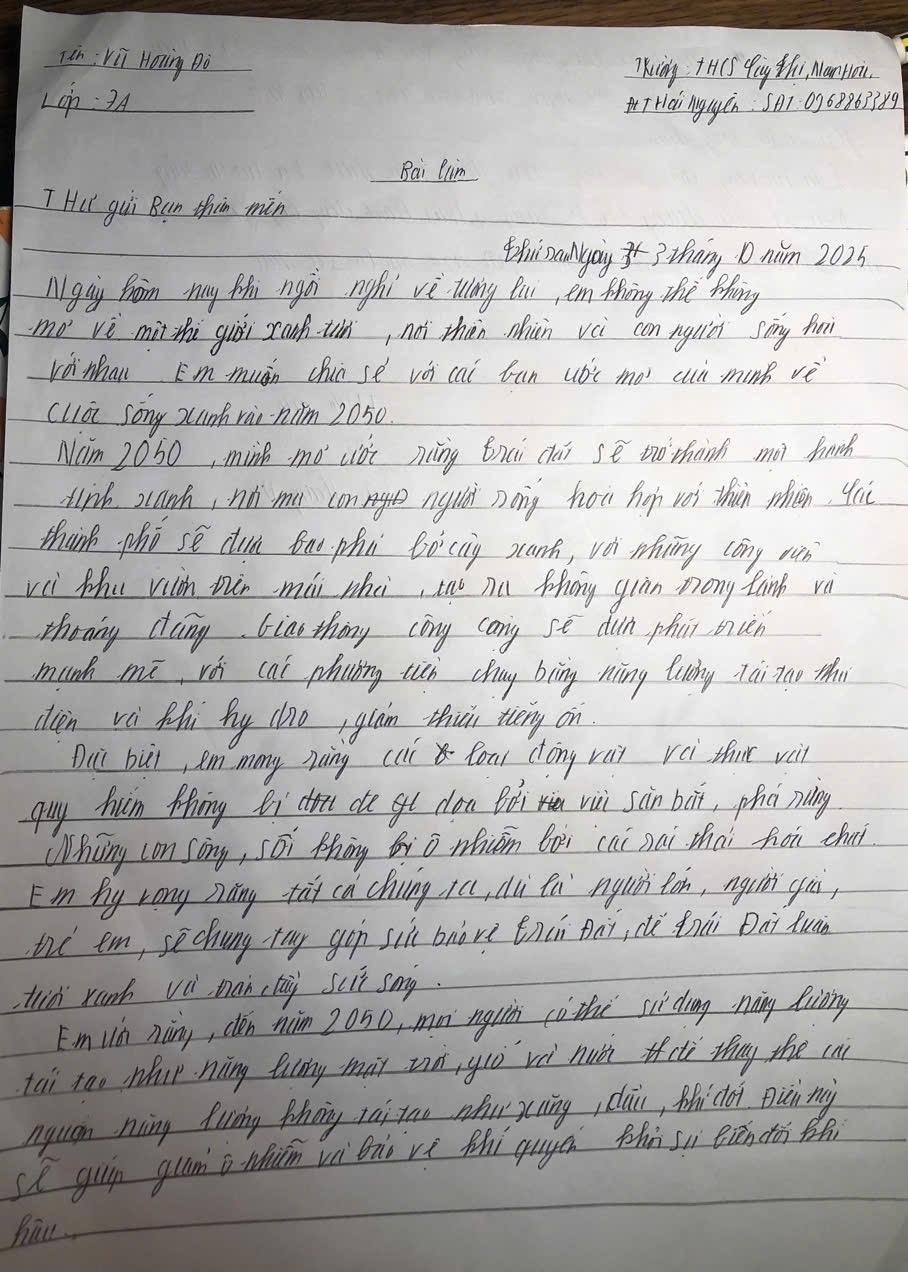 Tên : Vũ Hoàng Đô
Trường : THCS Nam Hoà,
Lớp : 7A
Thái Nguyên : SĐT : 0968863389
Bài làm
THư gửi Bạn thân mến
Ngày 3 tháng 10 năm 2025
Ngày hôm nay khi ngồi nghĩ về tương lai , em không thể không
mơ về một thế giới xanh tươi , nơi thiên nhiên và con người sống hoà
với nhau Em muốn chia sẻ với các bạn ước mơ của mình về
cuộc sống xanh vào năm 2050.
Năm 2050 , mình mơ ước rằng trái đất sẽ trở thành một hành
tinh xanh , nơi mà con người sống hoà hợp với thiên nhiên . Các
thành phố sẽ được bao phủ bở cây xanh, với những công viên
và khu vườn trên mái nhà , tạo ra không gian trong lành và
thoáng đãng . Giao thông công cộng sẽ được phát triển
mạnh mẽ , với các phương tiện chạy bằng năng lượng tái tạo như
điện và khí hy dro , giảm thiểu tiếng ồn .
Đặc biệt , em mong rằng các loại động vật và thực vật
quý hiếm không bị đe doạ bởi việc săn bắt , phá rừng
Những con sông , suối không bị ô nhiễm bởi các rác thải hoá chất .
Em hy vọng rằng tất cả chúng ta , dù là người lớn , người già ,
trẻ em , sẽ chung tay góp sức bảo vệ trái Đất , để trái Đất luôn
tươi xanh và tràn đầy sức sống .
Em ước rằng , đến năm 2050 , mọi người có thể sử dụng năng lượng
tái tạo như năng lượng mặt trời , gió và nước để thay thế các
nguồn năng lượng không tái tạo như xăng , dầu , khí đốt . Điều này
sẽ giúp giảm ô nhiễm và bảo vệ khí quyển khỏi sự biến đổi khí
hậu ..